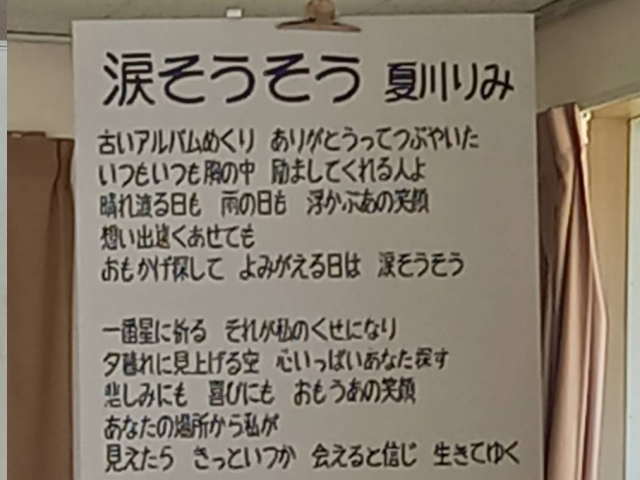 涙そうそう 夏川りみ
古いアルバムめくり ありがとうってつぶやいた
いつもいつも胸の中 励ましてくれる人よ
晴れ渡る日も 雨の日も 浮かぶあの笑顔
想い出遠くあせても
おもかげ探して よみがえる日は 涙そうそう
一番星に祈る それが私のくせになり
夕暮れに見上げる空 心いっぱいあなた探す
悲しみにも 喜びにも おもうあの笑顔
あなたの場所から私が
見えたら きっといつか 会えると信じ 生きてゆく